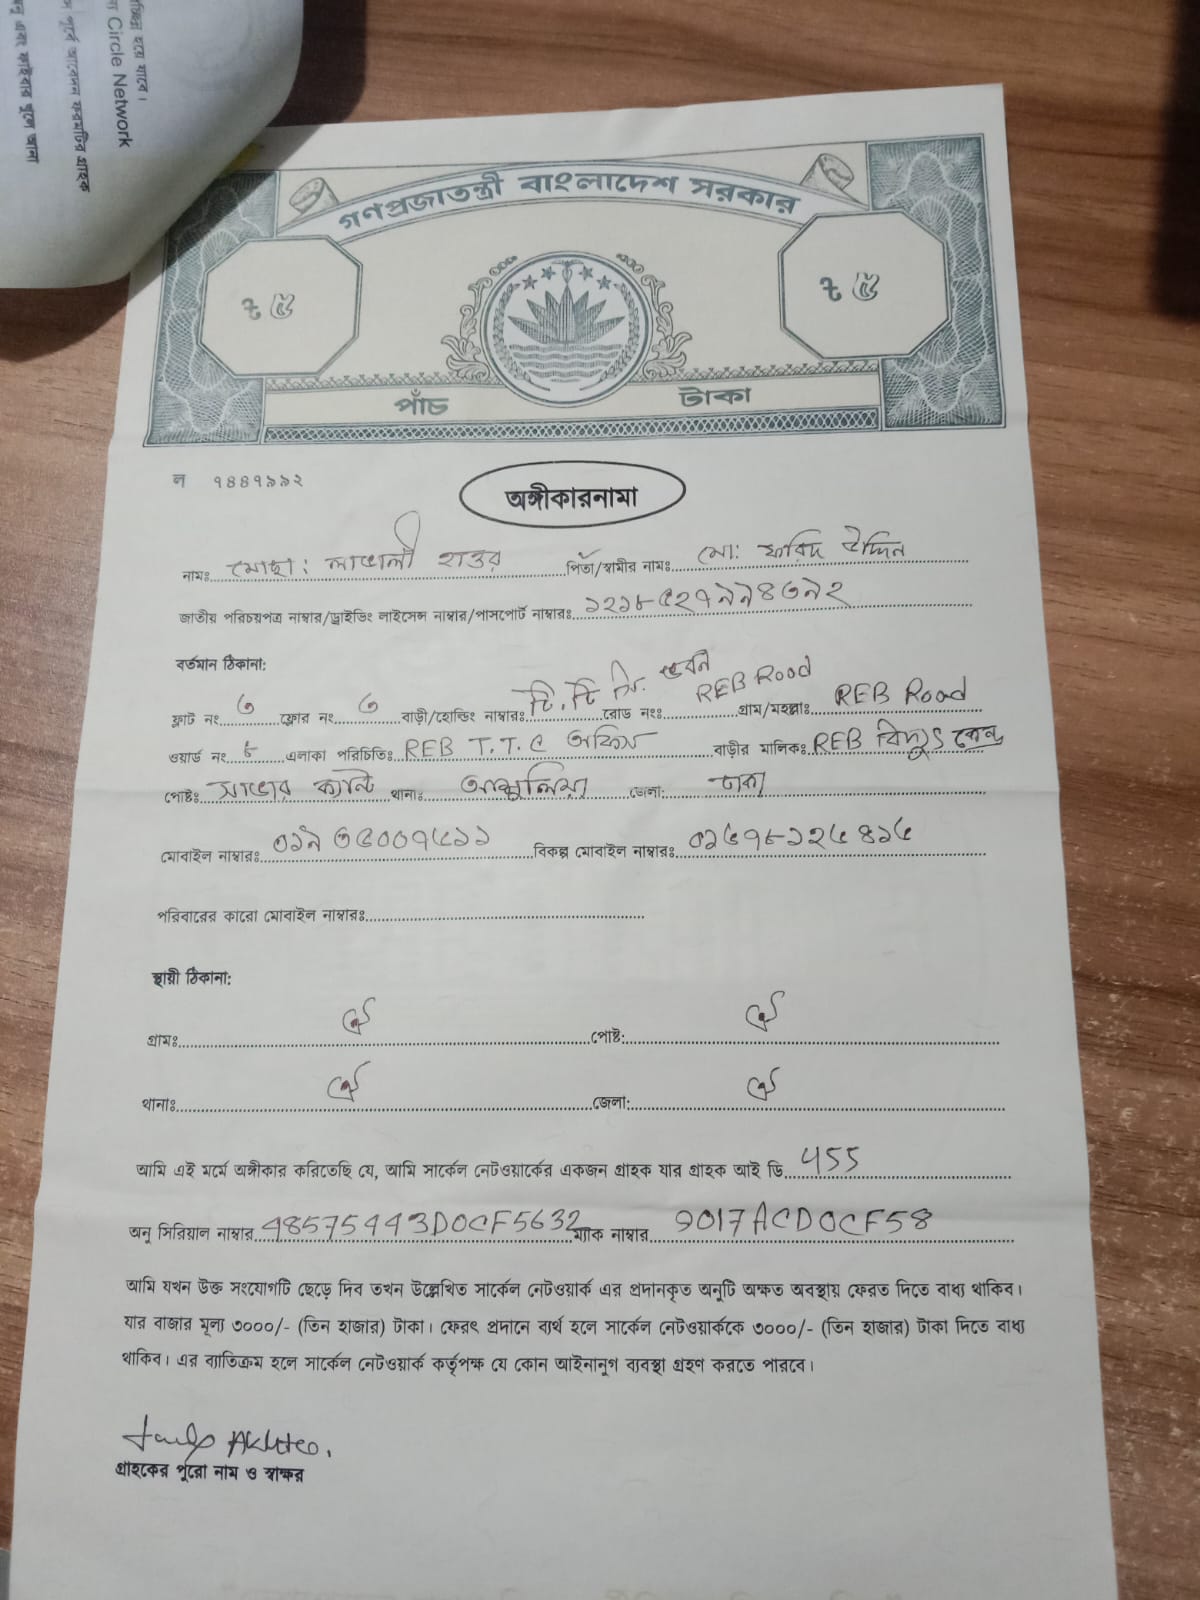 চ্ছিন্ন হয়ে যাবে।
Circle Network
পূর্বে আবেদন ফরমটির গ্রাহক
এবং ফাইবার খুলে আনা
গণপ্রজাতন্ত্রী বাংলাদেশ সরকার
৳ ৫ ৳ ৫
পাঁচ টাকা
ল ৭৪৪৭১১২
অঙ্গীকারনামা
নামঃ মোছা: লাভলী পিতা/স্বামীর নামঃ মো: ফরিদ উদ্দিন
জাতীয় পরিচয়পত্র নাম্বার/ড্রাইভিং লাইসেন্স নাম্বার/পাসপোর্ট নাম্বারঃ ১২১৮৫২৭৯৯৪৩৯২
বর্তমান ঠিকানা:
ফ্লাট নং ৩ ফ্লোর নং ৩ বাড়ী/হোল্ডিং নাম্বারঃ টি.টি সি. ভবন রোড নংঃ REB Road গ্রাম/মহল্লাঃ REB Road
ওয়ার্ড নং ৮ এলাকা পরিচিতিঃ REB T.T.C অফিস বাড়ীর মালিকঃ REB বিদ্যুৎ কেন্দ্র
পোষ্টঃ সাভার ক্যান্ট থানাঃ আশুলিয়া জেলা: ঢাকা
মোবাইল নাম্বারঃ ০১৯৩৫০০৭৫১১ বিকল্প মোবাইল নাম্বারঃ ০১৫৭৮১২৫৪১৫
পরিবারের কারো মোবাইল নাম্বারঃ
স্থায়ী ঠিকানা:
গ্রামঃ ঐ পোষ্ট: ঐ
থানাঃ ঐ জেলা: ঐ
আমি এই মর্মে অঙ্গীকার করিতেছি যে, আমি সার্কেল নেটওয়ার্কের একজন গ্রাহক যার গ্রাহক আই ডি 455
অনু সিরিয়াল নাম্বার 48575443D0CF5632 ম্যাক নাম্বার 9017ACD0CF58
আমি যখন উক্ত সংযোগটি ছেড়ে দিব তখন উল্লেখিত সার্কেল নেটওয়ার্ক এর প্রদানকৃত অনুটি অক্ষত অবস্থায় ফেরত দিতে বাধ্য থাকিব।
যার বাজার মূল্য ৩০০০/- (তিন হাজার) টাকা। ফেরৎ প্রদানে ব্যর্থ হলে সার্কেল নেটওয়ার্ককে ৩০০০/- (তিন হাজার) টাকা দিতে বাধ্য
থাকিব। এর ব্যতিক্রম হলে সার্কেল নেটওয়ার্ক কর্তৃপক্ষ যে কোন আইনানুগ ব্যবস্থা গ্রহণ করতে পারবে।
গ্রাহকের পুরো নাম ও স্বাক্ষর